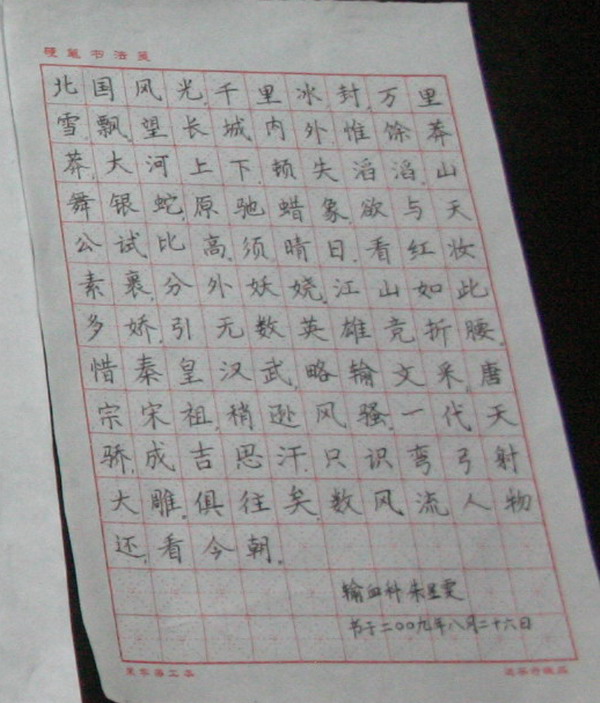 硬笔书法笺
北国风光,千里冰封,万里
雪飘,望长城内外,惟馀莽
莽,大河上下,顿失滔滔,山
舞银蛇,原驰蜡象,欲与天
公试比高,须晴日,看红妆
素裹,分外妖娆,江山如此
多娇,引无数英雄竞折腰,
惜秦皇汉武,略输文采,唐
宗宋祖,稍逊风骚,一代天
骄,成吉思汗,只识弯弓射
大雕,俱往矣,数风流人物
还,看今朝。
输血科 朱
书于二〇〇九年八月二十六日